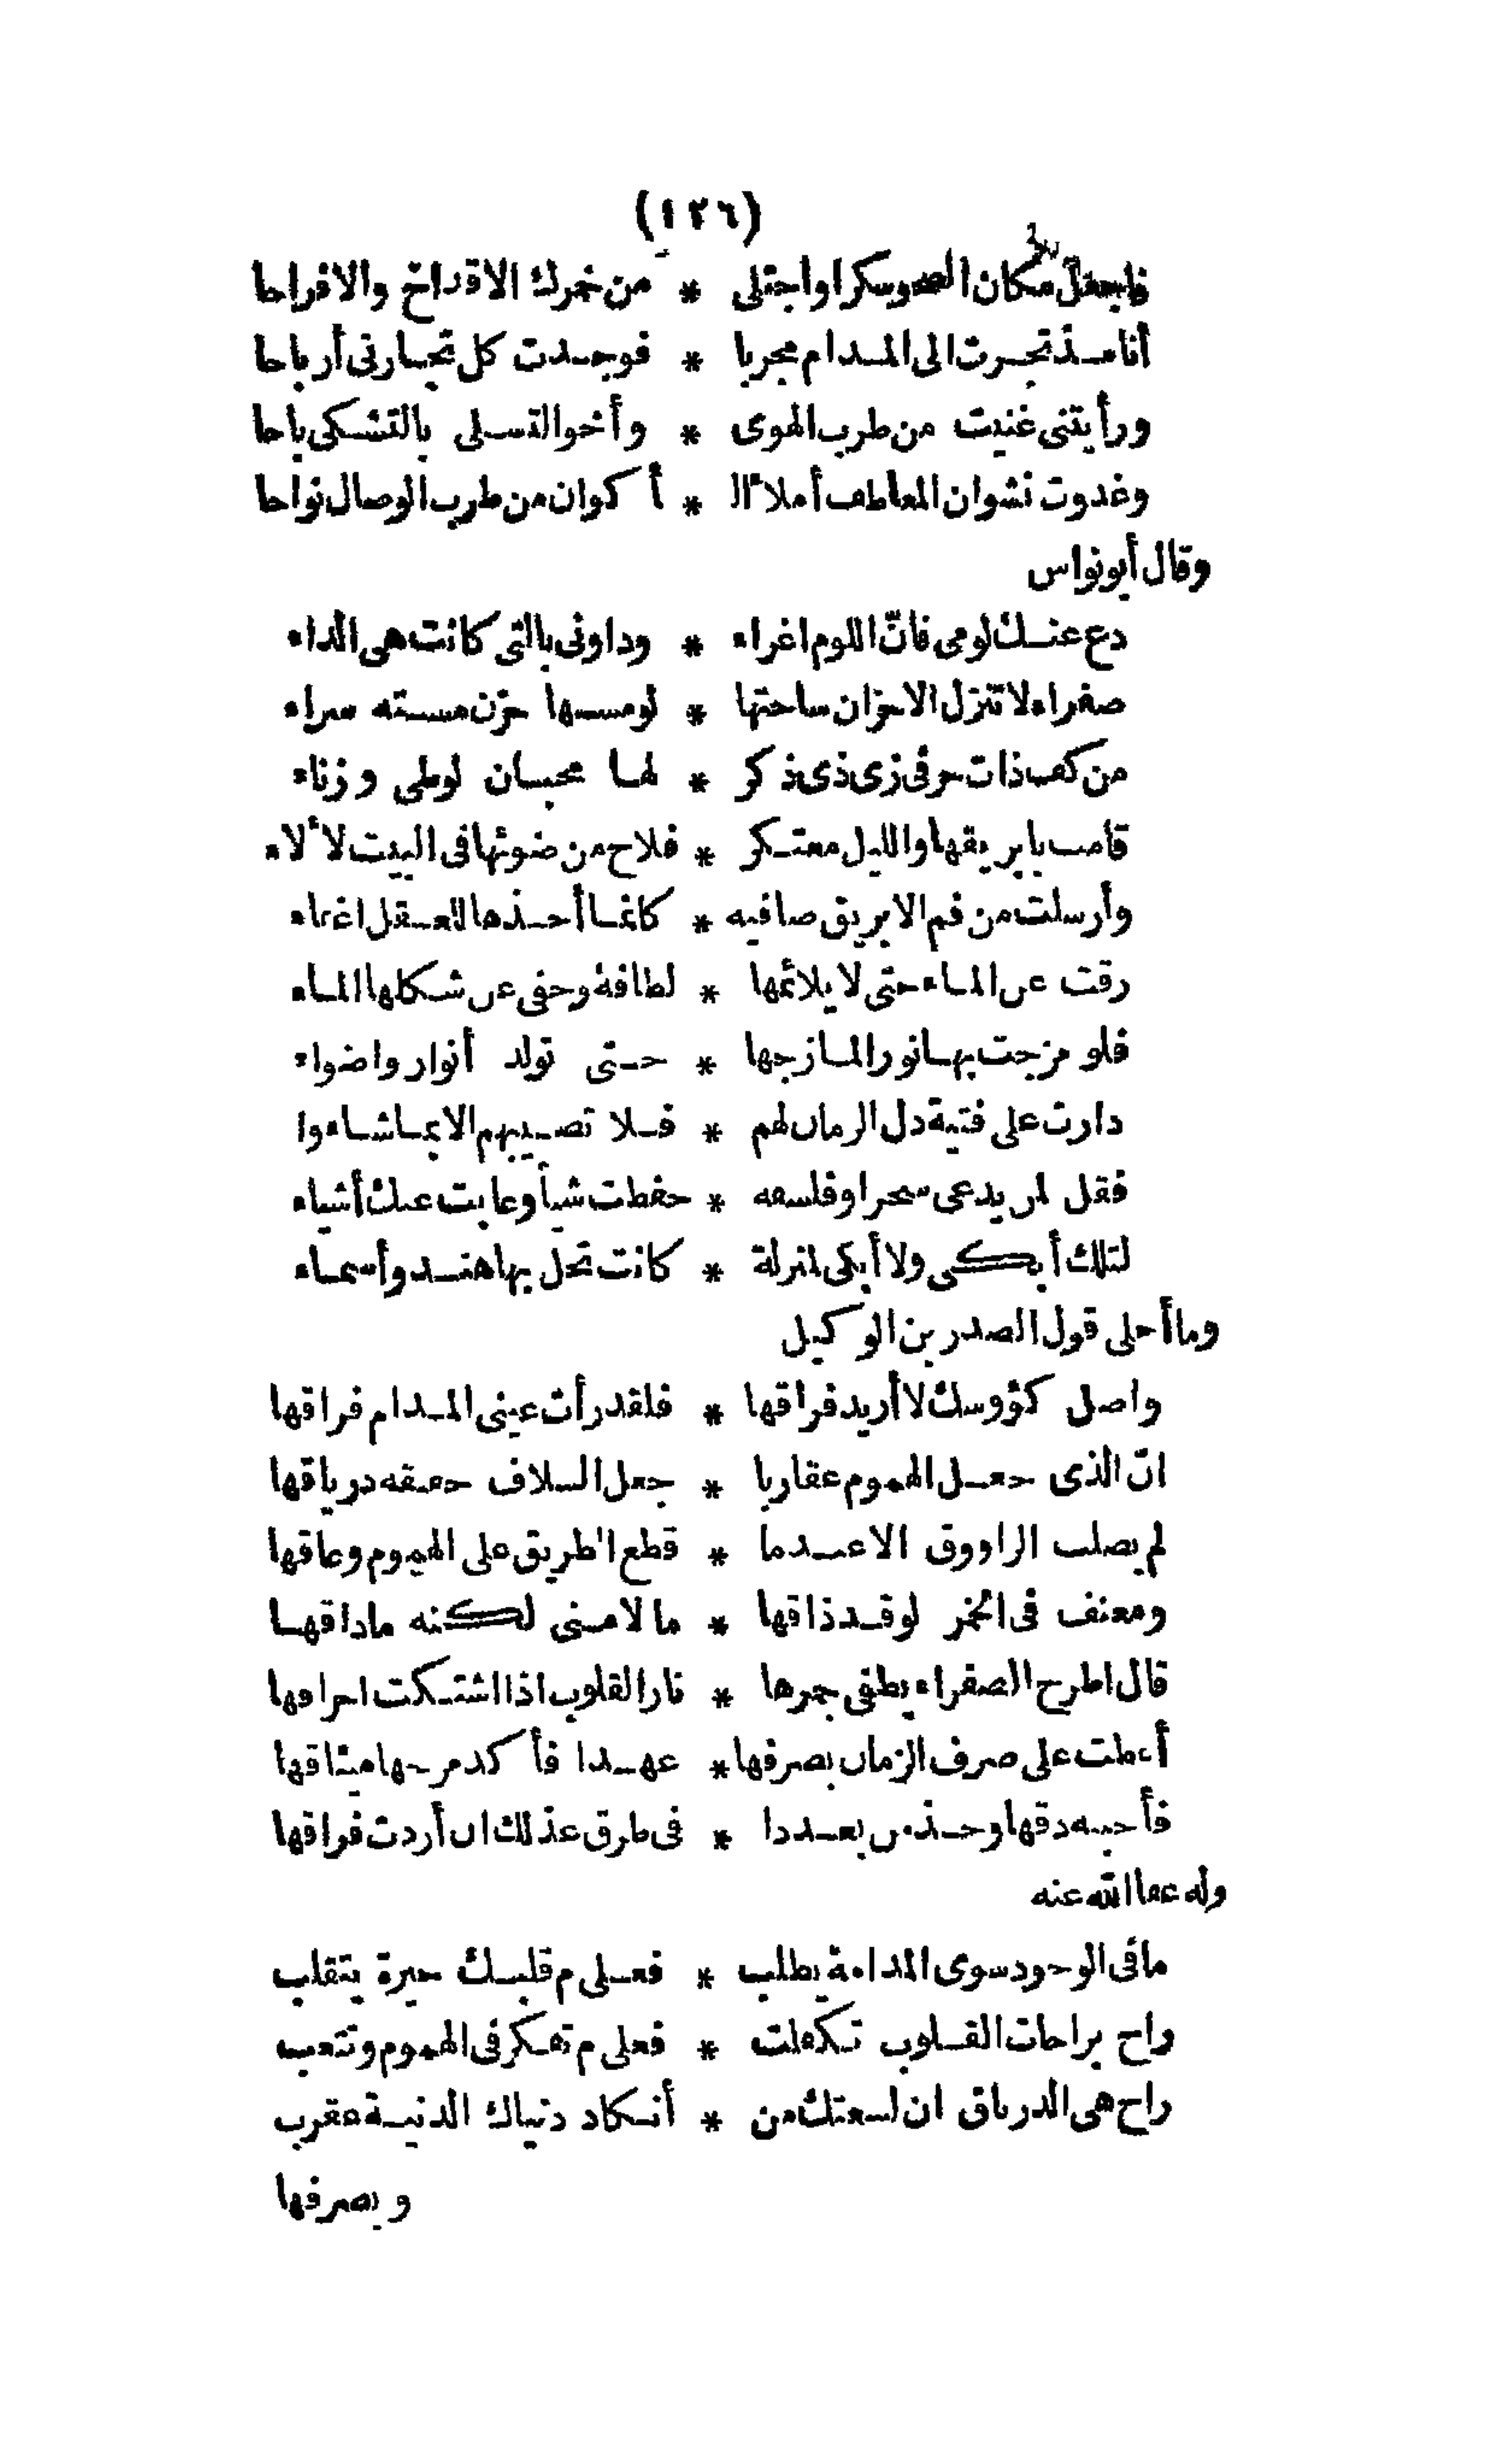 (١٢٦)
فاجعل مكان الصحو سكرا واجتلى * من خمرك الاقداح والافراحا
أنا مذ تجرت الى المدام مجربا * فوجدت كل تجارتى أرباحا
ورأيتنى غنيت من طرب الهوى * وأخو التسلى بالتشكى باحا
وغدوت نشوان المعاطف أملأ ال * أكوان من طرب الوصال نواحا
وقال أبو نواس
دع عنك لومى فانّ اللوم اغراء * وداونى بالتى كانت هى الداء
صفراء لا تنزل الاحزان ساحتها * لو مسها حزن مسته سراء
من كف ذات حر فى زى ذى ذكر * لها محبان لوطى وزناء
قامت بابريقها والليل معتكر * فلاح من ضوئها فى البيت لألاء
وأرسلت من فم الابريق صافيه * كانما أخذها للعقل اغفاء
رقت عن الماء حتى لا يلائمها * لطافة وجفى عن شكلها الماء
فلو مزجت بها نورا لمازجها * حتى تولد أنوار واضواء
دارت على فتية دل الزمان لهم * فلا تصيبهم الا بما شاءوا
فقل لمن يدعى سحرا وفلسفه * حفظت شيأ وغابت عنك أشياء
لتلك أبكى ولا أبكى لمنزلة * كانت تحل بها هند وأسماء
وما أحلى قول الصدر بن الوكيل
واصل كؤوسك لا أريد فراقها * فلقد رأت عينى المدام فراقها
انّ الذى جعل الهموم عقاربا * جعل السلاف حقيقه درياقها
لم يصلب الراووق الا عندما * قطع الطريق على الهموم وعاقها
ومعنف فى الخمر لو قد ذاقها * ما لامنى لكنه ما ذاقها
قال اطرح الصفراء يطفى جمرها * نار القلوب اذا اشتكت احراقها
أعطت على صرف الزمان بصرفها * عهدا فأكد مزجها ميثاقها
فأجبه دقها وخذ من بعد دا * فى طرق عذلك ان أردت فراقها
وله عفا الله عنه
ما فى الوجود سوى المدامة يطلب * فعلى م قلبك حيرة يتقلب
راح براحات القلوب تكفلت * فعلى م تفكر فى الهموم وتتعب
راح هى الدرياق ان لسعتك من * أنكاد دنياك الدنية عقرب
وبصرفها